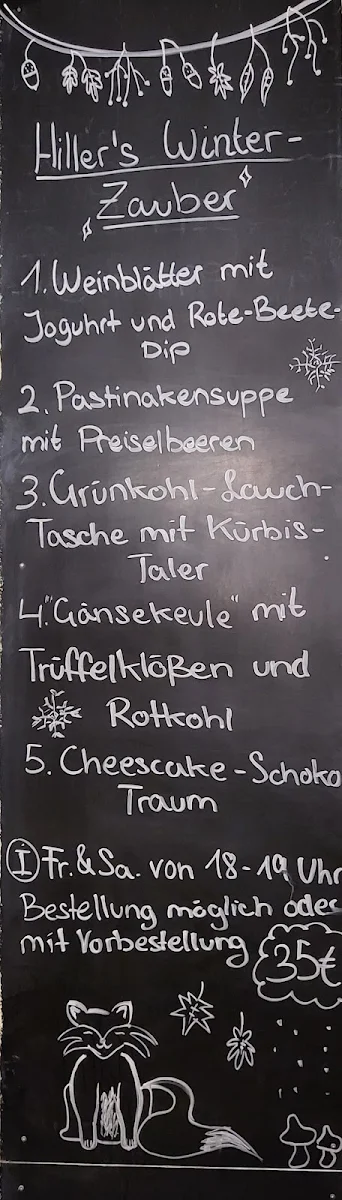 Hiller's Winter-
Zauber
1. Weinblätter mit
Joguhrt und Rote-Beete-
Dip
2. Pastinakensuppe
mit Preiselbeeren
3. Grünkohl-Lauch-
Tasche mit Kürbis-
Taler
4. "Gänsekeule" mit
Trüffelklößen und
Rotkohl
5. Cheescake-Schoko
Traum
i Fr. & Sa. von 18-19 Uhr
Bestellung möglich oder
mit Vorbestellung
35€